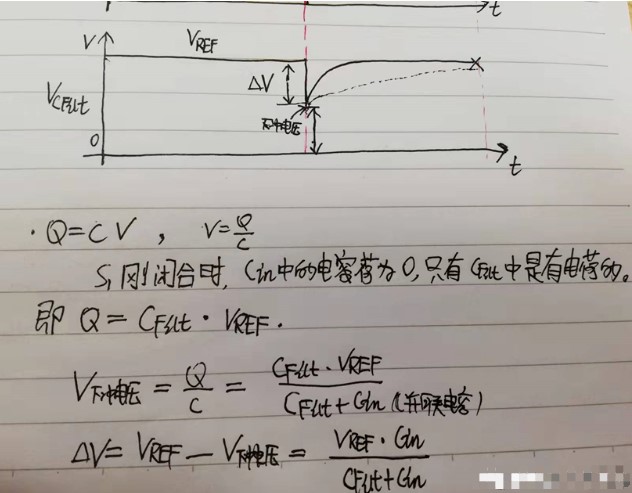 t
V
VREF
ΔV
VCFilt
下冲电压
0
t
· Q=CV , V=Q/C
S₁刚闭合时, Cin中的电容荷为0,只有CFilt中是有电荷的。
即 Q = CFilt · VREF.
V下冲电压 = Q/C = CFilt · VREF / CFilt + Cin (并联电容)
ΔV = VREF - V下冲电压 = VREF · Cin / CFilt + Cin